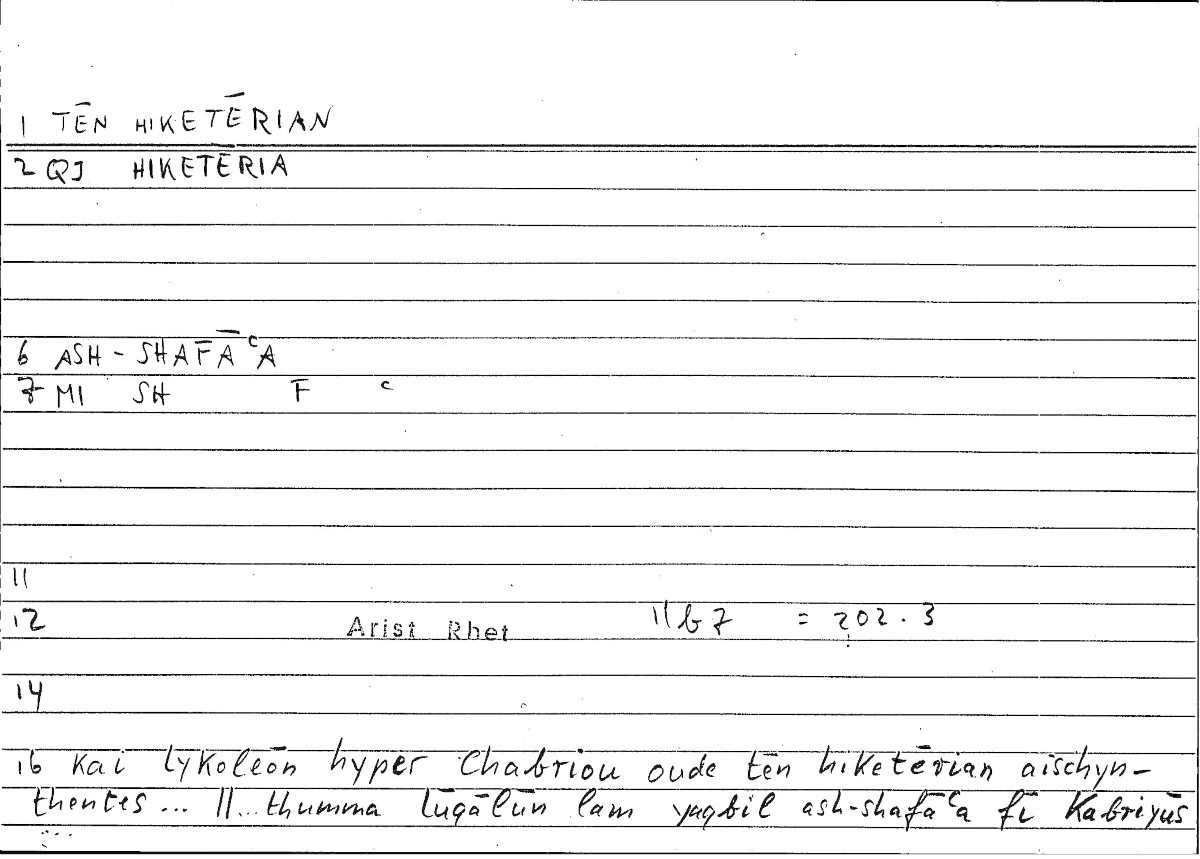 1 TĒN HIKETĒRIAN
2 QJ HIKETĒRIA
6 ASH-SHAFĀᶜA
7 MI SH F ᶜ
11
12 Arist Rhet 11b7 = 202.3
14
16 Kai Lykoleōn hyper Chabriou oude tēn hiketērian aischyn-
thentes ... || ... thumma Lūqālūn lam yaqbil ash-shafāᶜa fī Kabriyūs